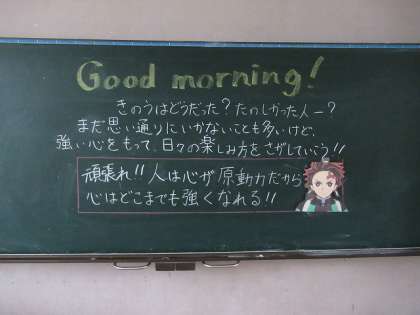 Good morning!
きのうはどうだった?たのしかった人ー?
まだ思い通りにいかないことも多いけど、
強い心をもって、日々の楽しみ方をさがしていこう!!
頑張れ!!人は心が原動力だから
心はどこまでも強くなれる!!